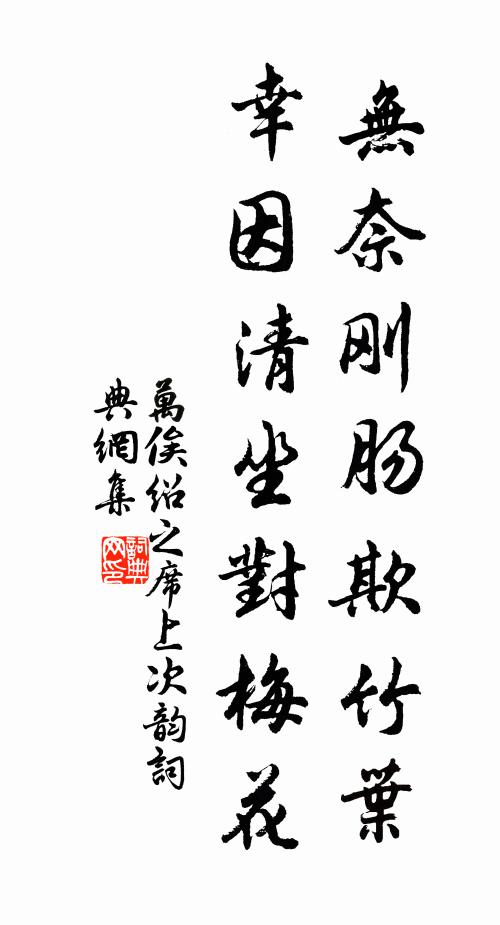 無奈刚肠欺竹葉
幸因清坐對梅花
萬俟紹之席上次韵詞
典網集
詞典
网印